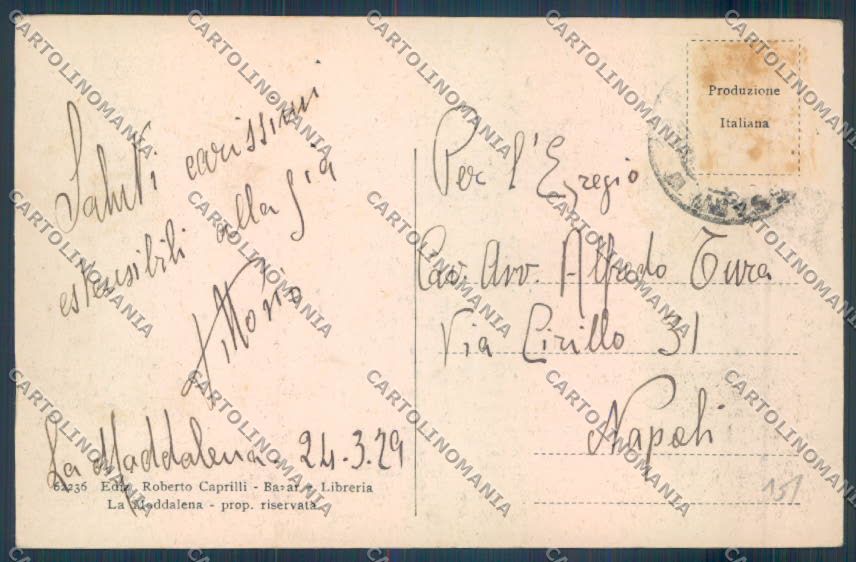 Saluti carissimi
estensibili alla
Vittorio
La Maddalena. 24.3.29
62236 Ediz. Roberto Caprilli - Bazar e Libreria
La Maddalena - prop. riservata
Produzione
Italiana
Per l'Egregio
Cav. Avv. Alfredo Tura
Via Cirillo 31
Napoli
CARTOLINOMANIA